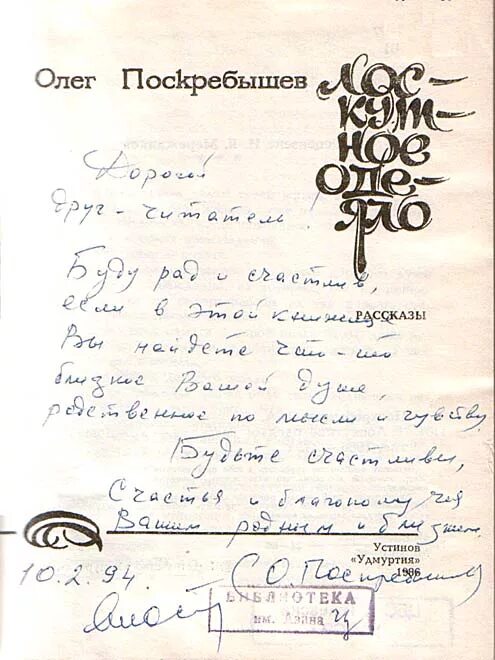 Олег Поскребышев
Лос-
кут-
ное
оде-
яло
Дорогой
друг - читатель!
Буду рад и счастлив,
если в этой книжке
РАССКАЗЫ
Вы найдете что-то
близкое Вашей душе,
родственное по мысли и чувству.
Будьте счастливы,
Счастья и благополучия
Вашим родным и близким.
Устинов
"Удмуртия"
1986
10.2.94.
О. Поскребышев
БИБЛИОТЕКА
им.